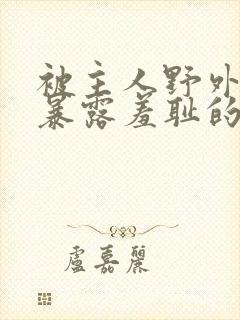 被主人野外
暴露羞耻的
盧嘉麗